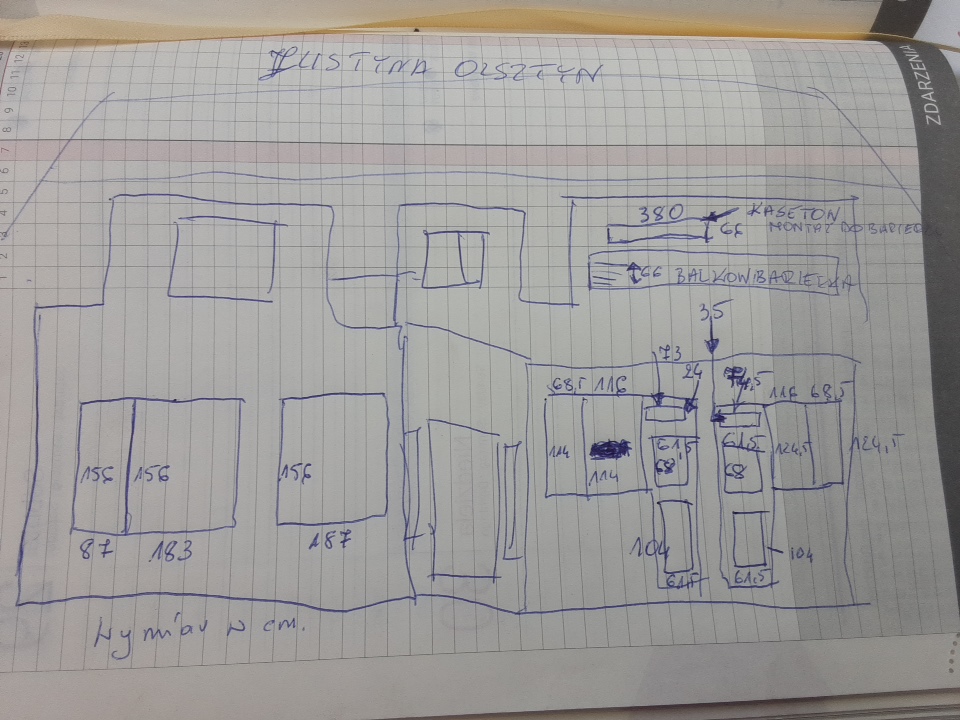 ZDARZENIA
JUSTYNA OLSZTYN
380
KASETON
66
MONTAŻ DO BARIERKI
66 BALKON BARIERKA
35
73
24
74,5
68,5 116
116 68,5
114
114
61,5
68
61,5
68
124,5
124,5
156
156
156
87
183
187
104
61,5
104
61,5
Wymiar w cm.
12
11
10
9
8
7
6
5
4
3
2
1